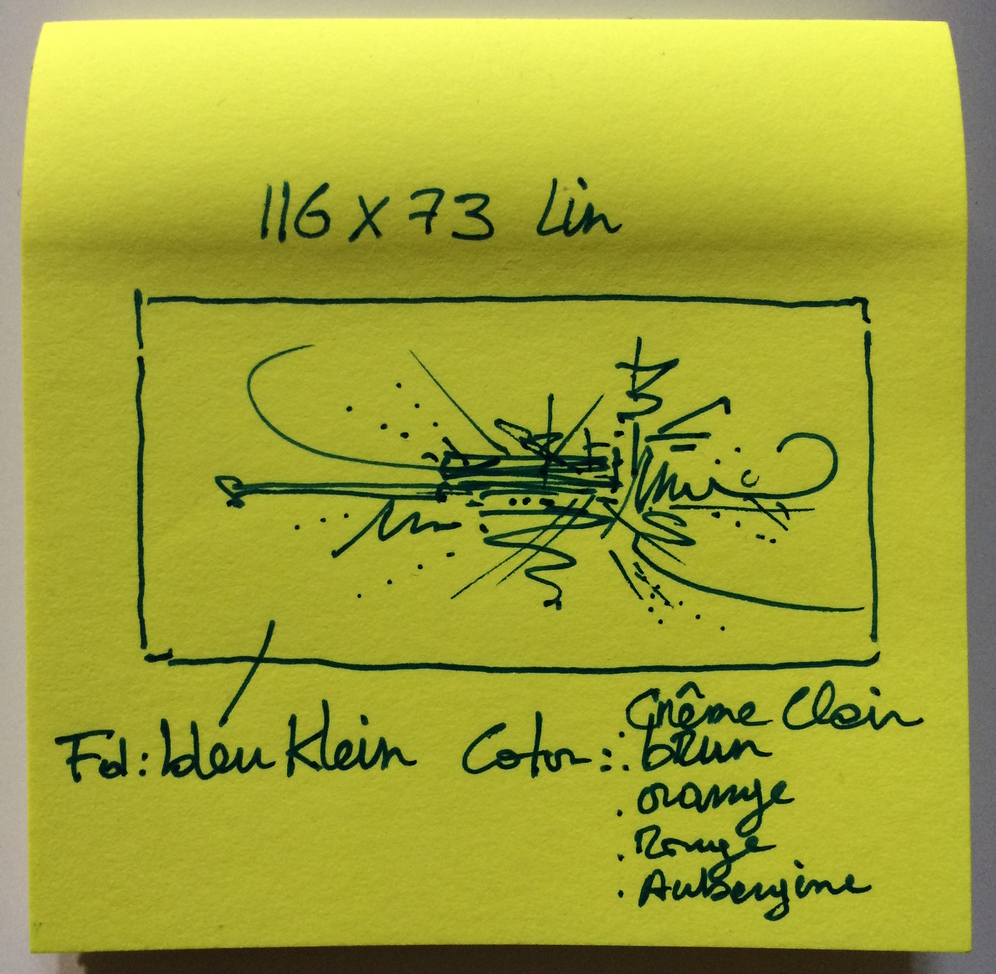 116 x 73 Lin
Fd: bleu Klein
Color:
. Crême Clair
. brun
. orange
. Rouge
. Aubergine